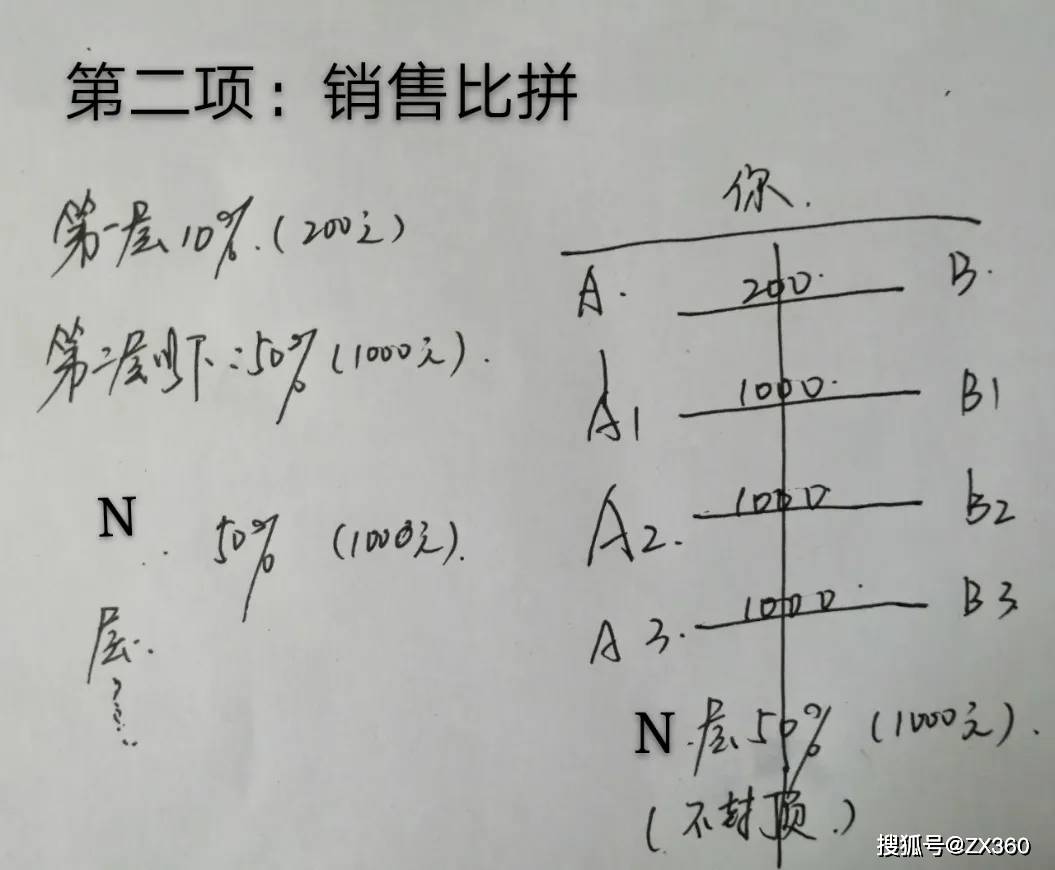 第二项：销售比拼
第一层10%.(200元)
第二层以下:50%(1000元).
N
50% (1000元).
层.
你.
A. 200. B.
A1 1000. B1
A2. 1000 B2
A3. 1000. B3
N.层50%(1000元).
(不封顶.)
搜狐号@ZX360